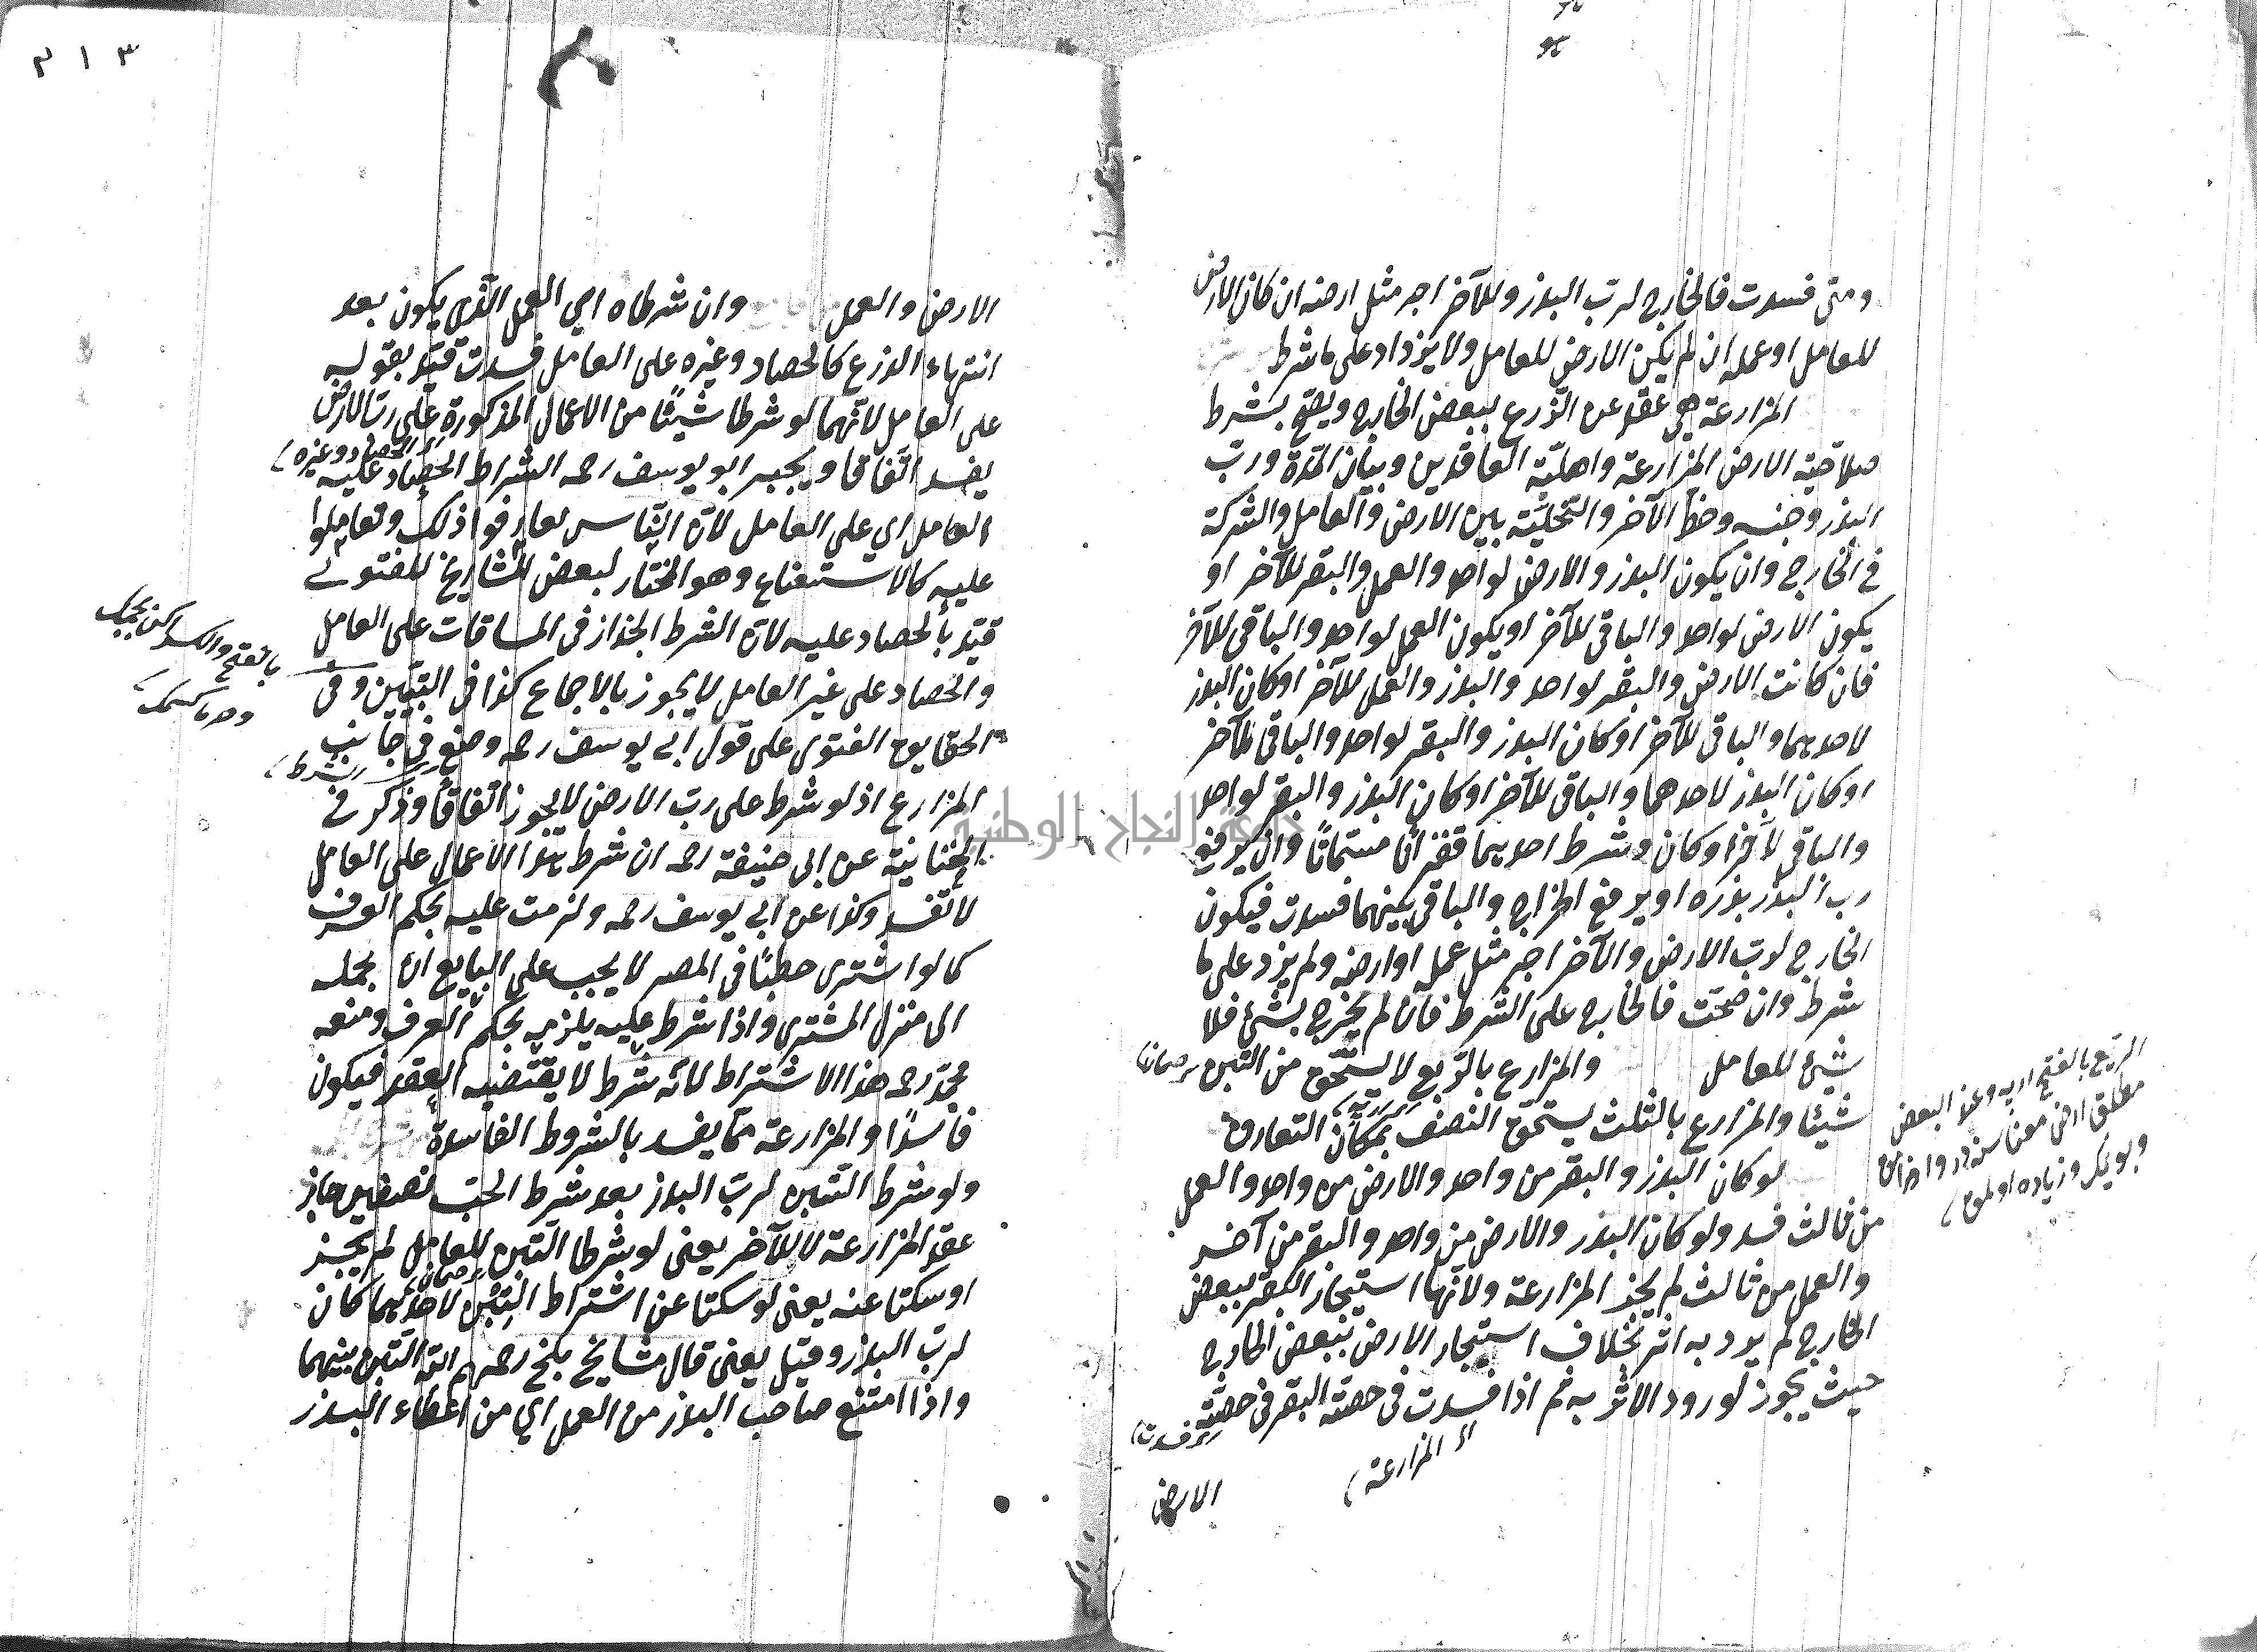 ومتى فسدت فالخارج لرب البذر وللآخر اجر مثل ارضه ان كان الارض
للعامل او عمله ان لم يكن الارض للعامل ولا يزداد على ما شرط
المزارعة هي عقد عن الزرع ببعض الخارج ويصح بشرط
صلاحية الارض المزارعة واهليّة العاقدين وبيان المدّة وربّ
البذر وجنسه وحظّ الآخر والتخليّة بين الارض والعامل والشركة
في الخارج وان يكون البذر والارض لواحد والعمل والبقر للآخر او
يكون الارض لواحد والباقى للآخر او يكون العمل لواحد والباقى للآخر
فان كانت الارض والبقر لواحد والبذر والعمل للآخر او كان البذر
لاحدهما والباقى للآخر او كان البذر والبقر لواحد والباقى للآخر
او كان البذر لاحدهما والباقى للآخر او كان البذر والبقر لواحد
والباقى لآخر او كان وشرط احديهما قفزانا مسمّاتًا وان يرفع
رب البذر بذره او يرفع الخراج والباقى بينهما فسدت فيكون
الخارج لرب الارض والآخر اجر مثل عمله او ارضه ولم يزد على ما
شرط وان صحّت فالخارج على الشرط فان لم يخرج بشئ فلا
شيئ للعامل والمزارع بالرّبع لا يستحق من التبن
شيئا والمزارع بالثلث يستحق النصف بمكان التعارف
لو كان البذر والبقر من واحد والارض من واحد والعمل
من ثالث فسد ولو كان البذر والارض من واحد والبقر من آخر
والعمل من ثالث لم يجز المزارعة ولانّها استيجار البقر ببعض
الخارج لم يرد به اثر بخلاف استيجار الارض ببعض الخارج
حيث يجوز لورود الاثر به ثم اذا فسدت في حصته البقر فى حصّته
فسدت
اى المزارعة
الارض
الرّبع بالفتح
وعند البعض
٣١٣
الارض والعمل وان شرطاه اى العمل الذى يكون بعد
انتهاء الزرع كالحصاد وغيره على العامل فسدت قيّد بقوله
على العامل لانّهما لو شرطا شيئًا من الاعمال المذكورة على ربّ الارض
اى الحصاد وغيره
يفسد اتّفاقا ويجبر ابو يوسف رحمه اشتراط الحصاد عليه
العامل اى على العامل لانّ النّاس تعارفوا ذلك وتعاملوا
عليه كالاستصناع وهو المختار لبعض المشاريخ للفتوى
قيّد بالحصاد عليه لانّ الشرط الجذاز فى المساقات على العامل
والحصاد على غير العامل لا يجوز بالاجماع كذا فى التبيين وفى
الحقايق الفتوى على قول ابى يوسف رحمه وضع فى جانب
المزارع اذ لو شرط على رب الارض لا يجوز اتفاقًا وذكر فى
الخانية عن ابى حنيفة رحمه ان شرط هذا الاعمال على العامل
لا تفسد وكذا عن ابى يوسف رحمه ولزمت عليه بحكم العرف
كما لو اشترى حطبًا فى المصر لا يجب على البايع ان يحمله
الى منزل المشترى واذا شرط عليه يلزمه بحكم العرف ومنعه
محمّد رحمه هذا الاشتراط لانّه شرط لا يقتضيه العقد فيكون
فاسدًا والمزارعة ممّا يفسد بالشروط الفاسدة
ولو شرط التبن لربّ البذر بعد شرط الحبّ نصفين جاز
عقد المزارعة لا للآخر يعنى لو شرطا التبن للعامل لم يجز
او سكتا عنه يعنى لو سكتا عن اشتراط التبن لاحديهما كان
لربّ البذر وقيل يعنى قال مشايخ بلخ رحمهم الله التبن بينهما
واذا امتنع صاحب البذر من العمل اى من اعطاء البذر
بالفتح والكسر
جامعة النجاح الوطنية